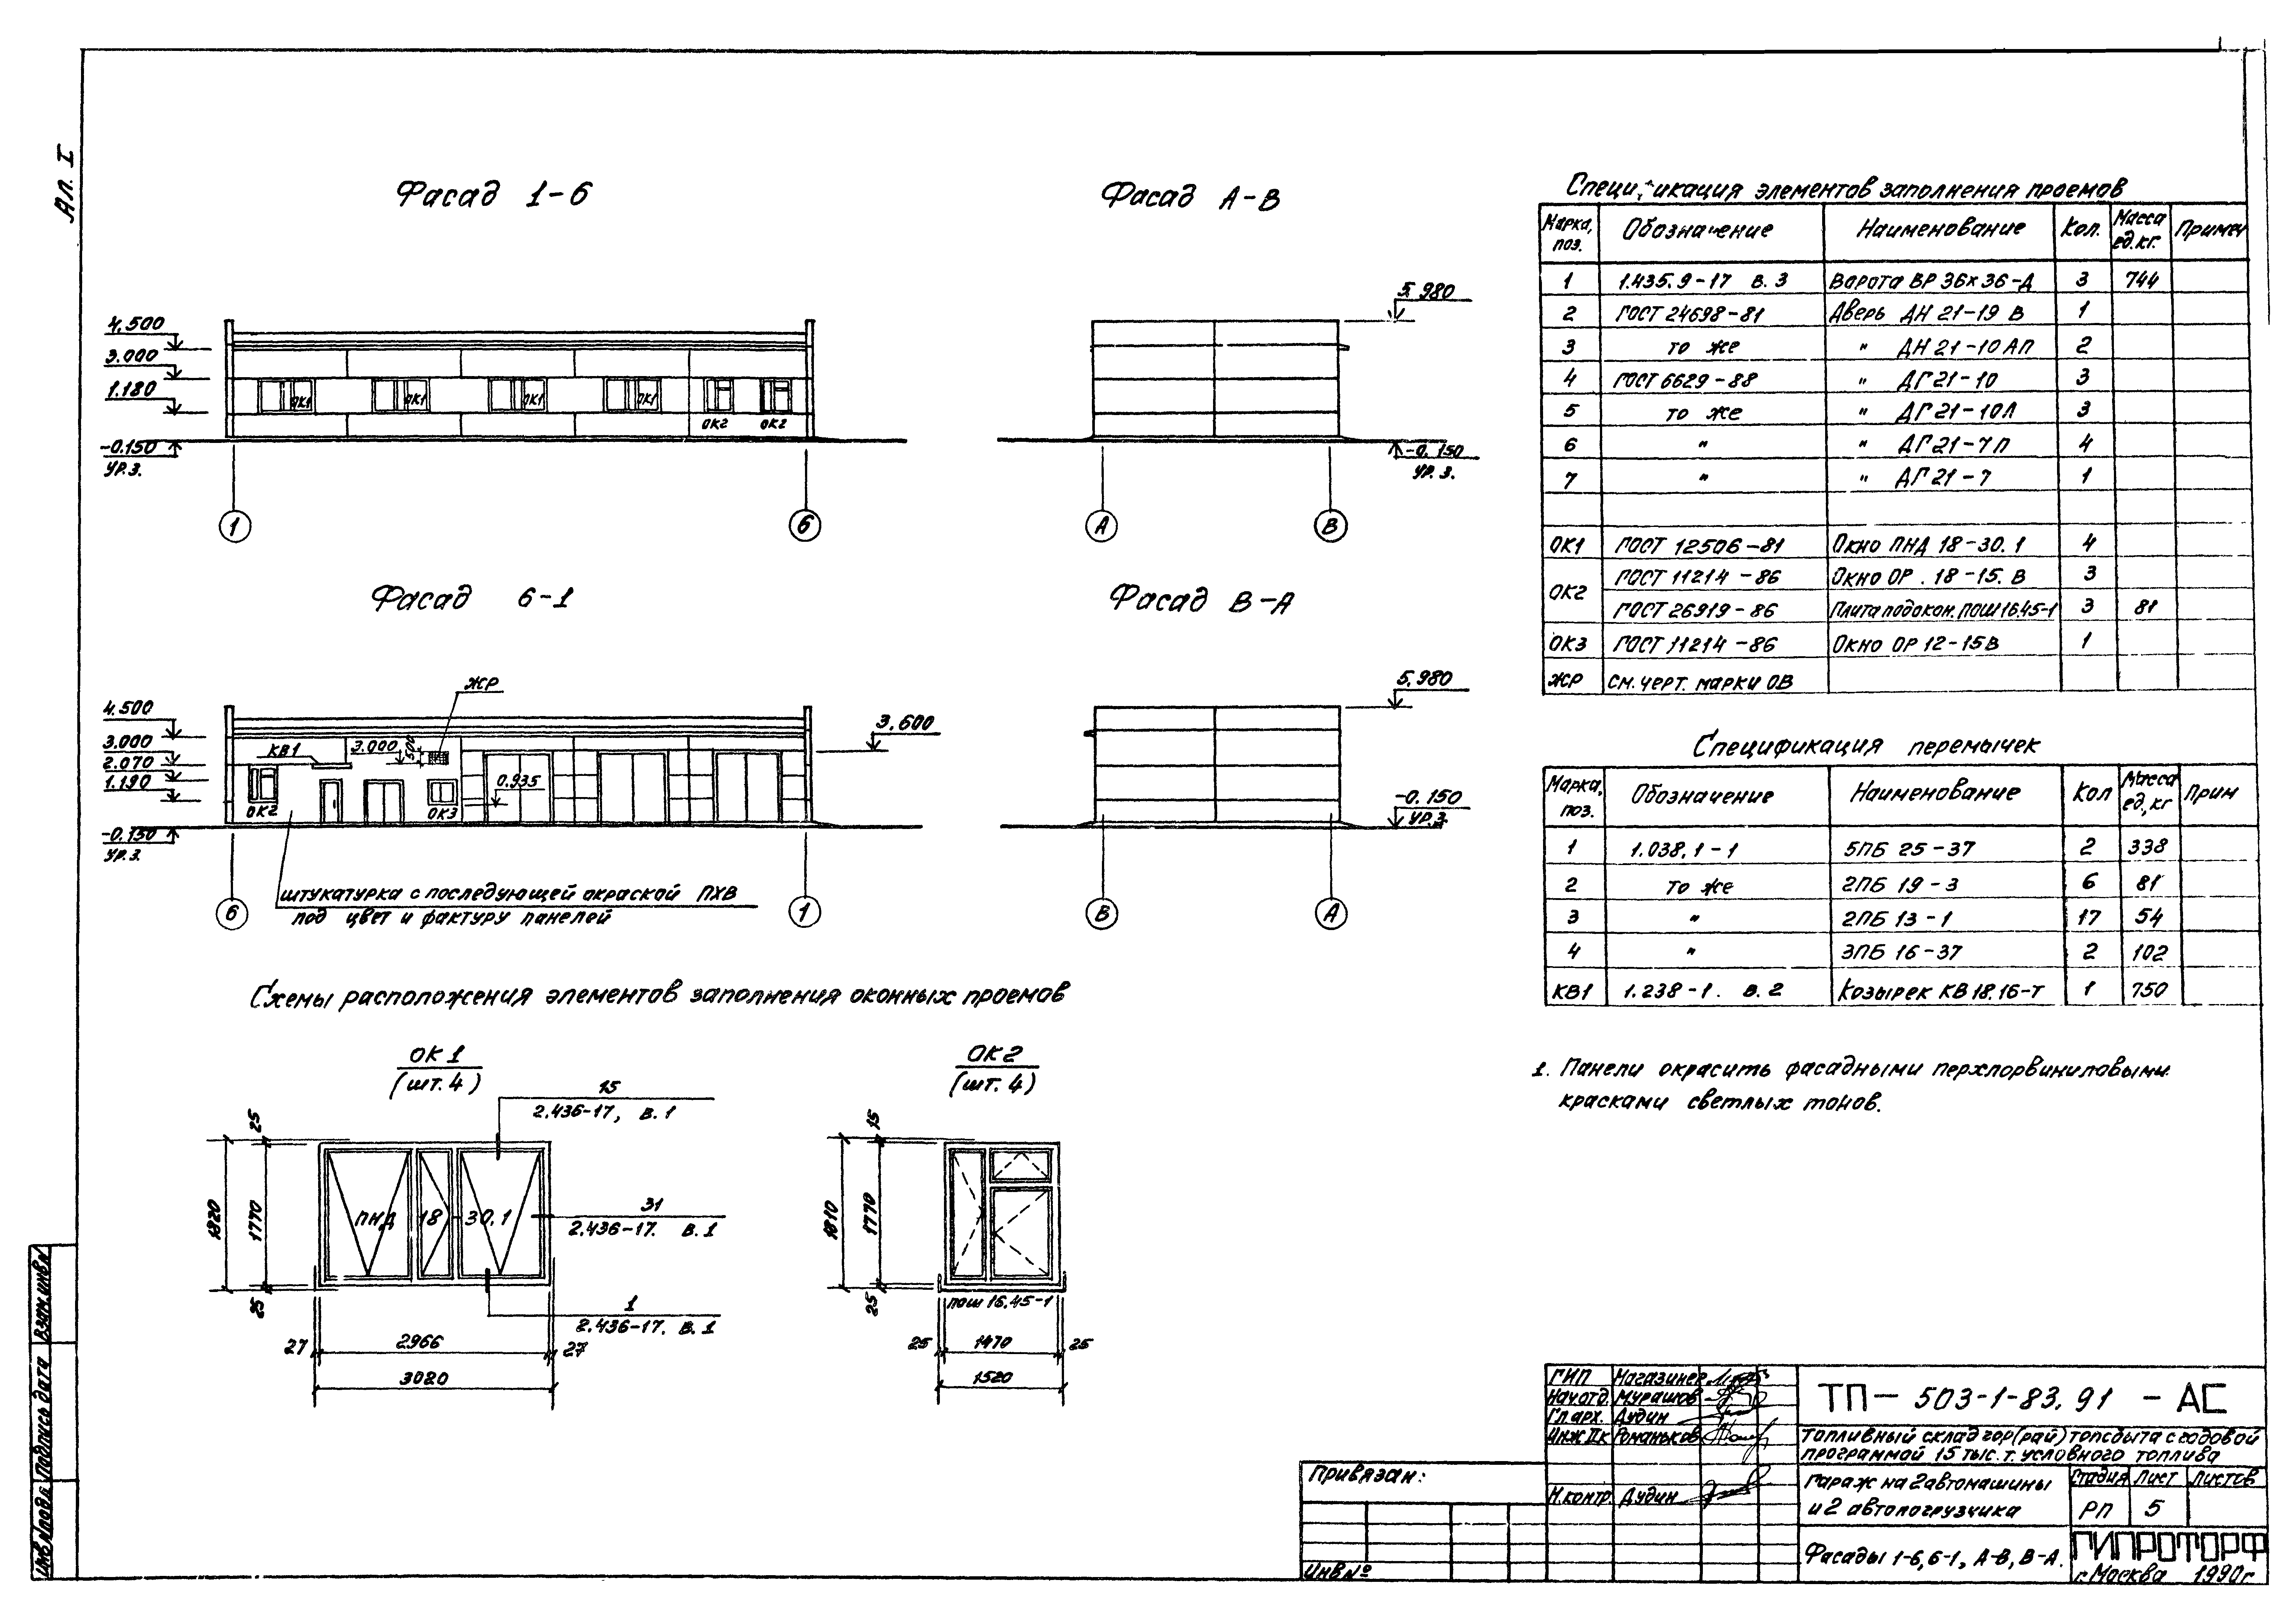 Ал. I
Фасад 1-6
4.500
3.000
1.180
-0.150
ур.з.
ОК1
ОК1
ОК1
ОК1
ОК2
ОК2
1
6
Фасад А-В
5.980
-0.150
ур.з.
А
В
Фасад 6-1
ЖР
4.500
3.000
2.070
1.190
-0.150
ур.з.
КВ1
3.000
500
3.600
0.935
ОК2
ОК3
6
1
штукатурка с последующей окраской ПХВ
под цвет и фактуру панелей
Фасад В-А
5.980
-0.150
ур.з.
В
А
Схемы расположения элементов заполнения оконных проемов
ОК1
(шт. 4)
15
2.436-17, в.1
31
2.436-17. в.1
1
2.436-17. в.1
ПНД 18-30.1
25
1820
1770
25
27
2966
27
3020
ОК2
(шт. 4)
15
1810
1770
25
пош 16.45-1
25
1470
25
1520
Спецификация элементов заполнения проемов
Марка, поз. Обозначение Наименование Кол. Масса ед.кг. Примеч
1 1.435.9-17 в.3 Ворота ВР 36х36-Д 3 744
2 ГОСТ 24698-81 Дверь ДН 21-19 В 1
3 то же " ДН 21-10АП 2
4 ГОСТ 6629-88 " ДГ 21-10 3
5 то же " ДГ 21-10Л 3
6 " " ДГ 21-7П 4
7 " " ДГ 21-7 1
ОК1 ГОСТ 12506-81 Окно ПНД 18-30.1 4
ОК2 ГОСТ 11214-86 Окно ОР . 18-15. В 3
ГОСТ 26919-86 Плита подокон. ПОШ 16.45-1 3 81
ОК3 ГОСТ 11214-86 Окно ОР 12-15В 1
ЖР см. черт. марки ОВ
Спецификация перемычек
Марка, поз. Обозначение Наименование Кол Масса ед, кг Прим
1 1.038.1-1 5ПБ 25-37 2 338
2 то же 2ПБ 19-3 6 81
3 " 2ПБ 13-1 17 54
4 " 3ПБ 16-37 2 102
КВ1 1.238-1. в.2 Козырек КВ 18.16-Т 1 750
1. Панели окрасить фасадными перхлорвиниловыми
красками светлых тонов.
ГИП Магазинер
Нач.отд. Мурашов
Гл.арх. Дудин
Инж IIк Романьков
Н.контр. Дудин
Привязан:
Инв №
ТП- 503-1-83.91 -АС
Топливный склад гор(рай)топсбыта с годовой
программой 15 тыс. т. условного топлива
гараж на 2 автомашины
и 2 автопогрузчика
Стадия Лист Листов
РП 5
Фасады 1-6, 6-1, А-В, В-А.
ГИПРОТОРФ
г. Москва 1990г
Взам.инв№
Подпись дата
Инв№подл.